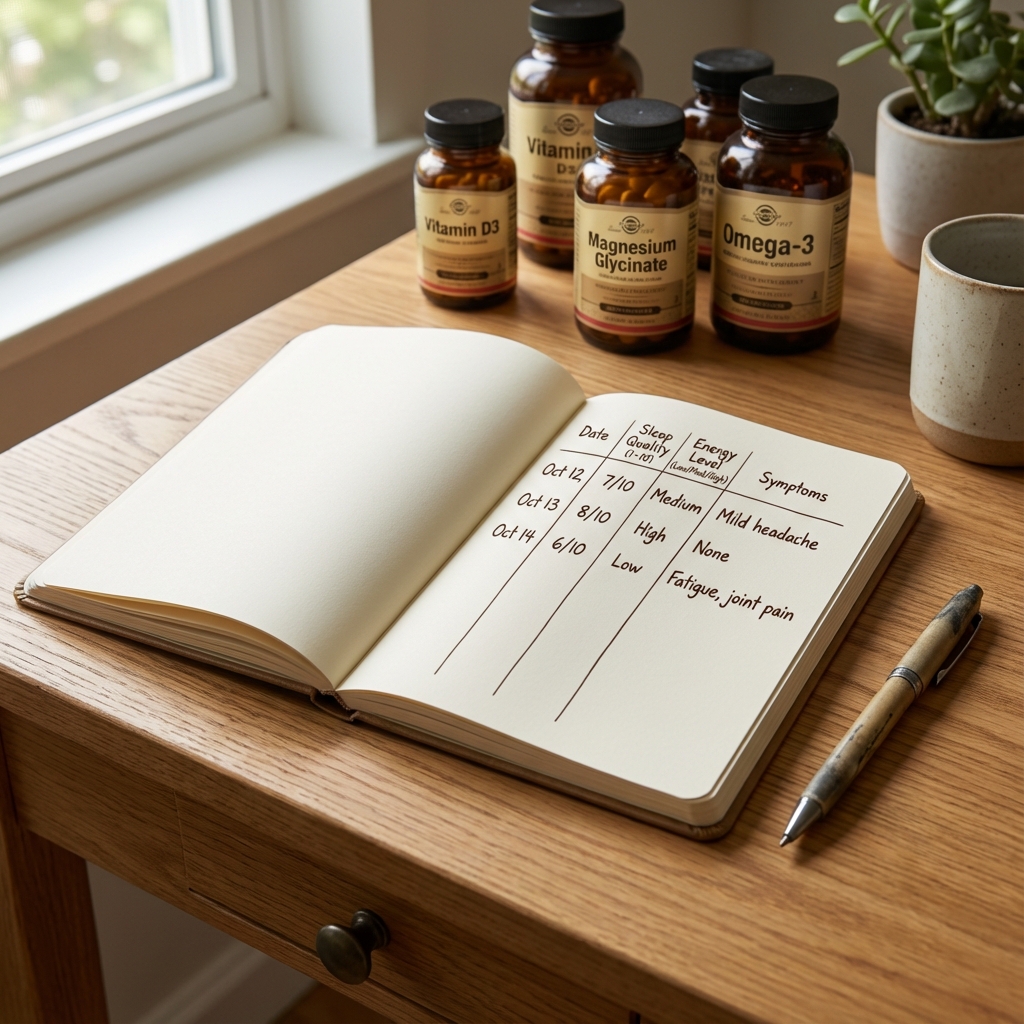 Vitamin D3
Vitamin
D3
Magnesium
Glycinate
Omega-3
Date
Sleep
Quality
(1-10)
Energy
Level
Symptoms
Oct 12 7/10 Medium Mild headache
Oct 13 8/10 High None
Oct 14 6/10 Low Fatigue, joint pain